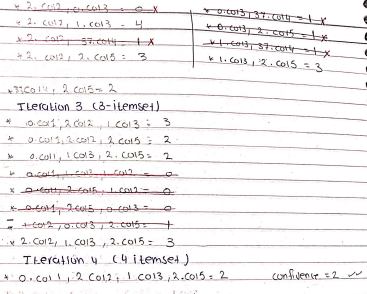 * 2. Col2, 0.col3 = 0 x
* 2. col2, 1. col3 - 4
* 2. col2, 37.col4 = 1 x
* 2. col2, 2. col5 = 3
* 0.col3, 37.col4 = 1 x
* 0.col3, 2.col5 = 1 x
* 1.col3, 37.col4 = 1 x
* 1.col3, 2.col5 = 3
*37col4, 2 col5 = 2
Iteration 3 (3-itemset)
* 0.col1, 2col2, 1col3 = 3
* 0.col1, 2.col2, 2col5 = 2
* 0.col1, 1col3, 2.col5 = 2
* 0.col1, 1.col3, 1.col2 = 0
* 0.col1, 2.col5, 1.col2 = 0
* 0.col1, 2col5, 0.col3 = 0
= 1col2, 0.col3, 2.col5 = 1
* 2.col2, 1.col3, 2.col5 = 3
Iteration 4 (4 itemset)
* 0.col1, 2col2, 1col3, 2.col5 = 2 confidence = 2